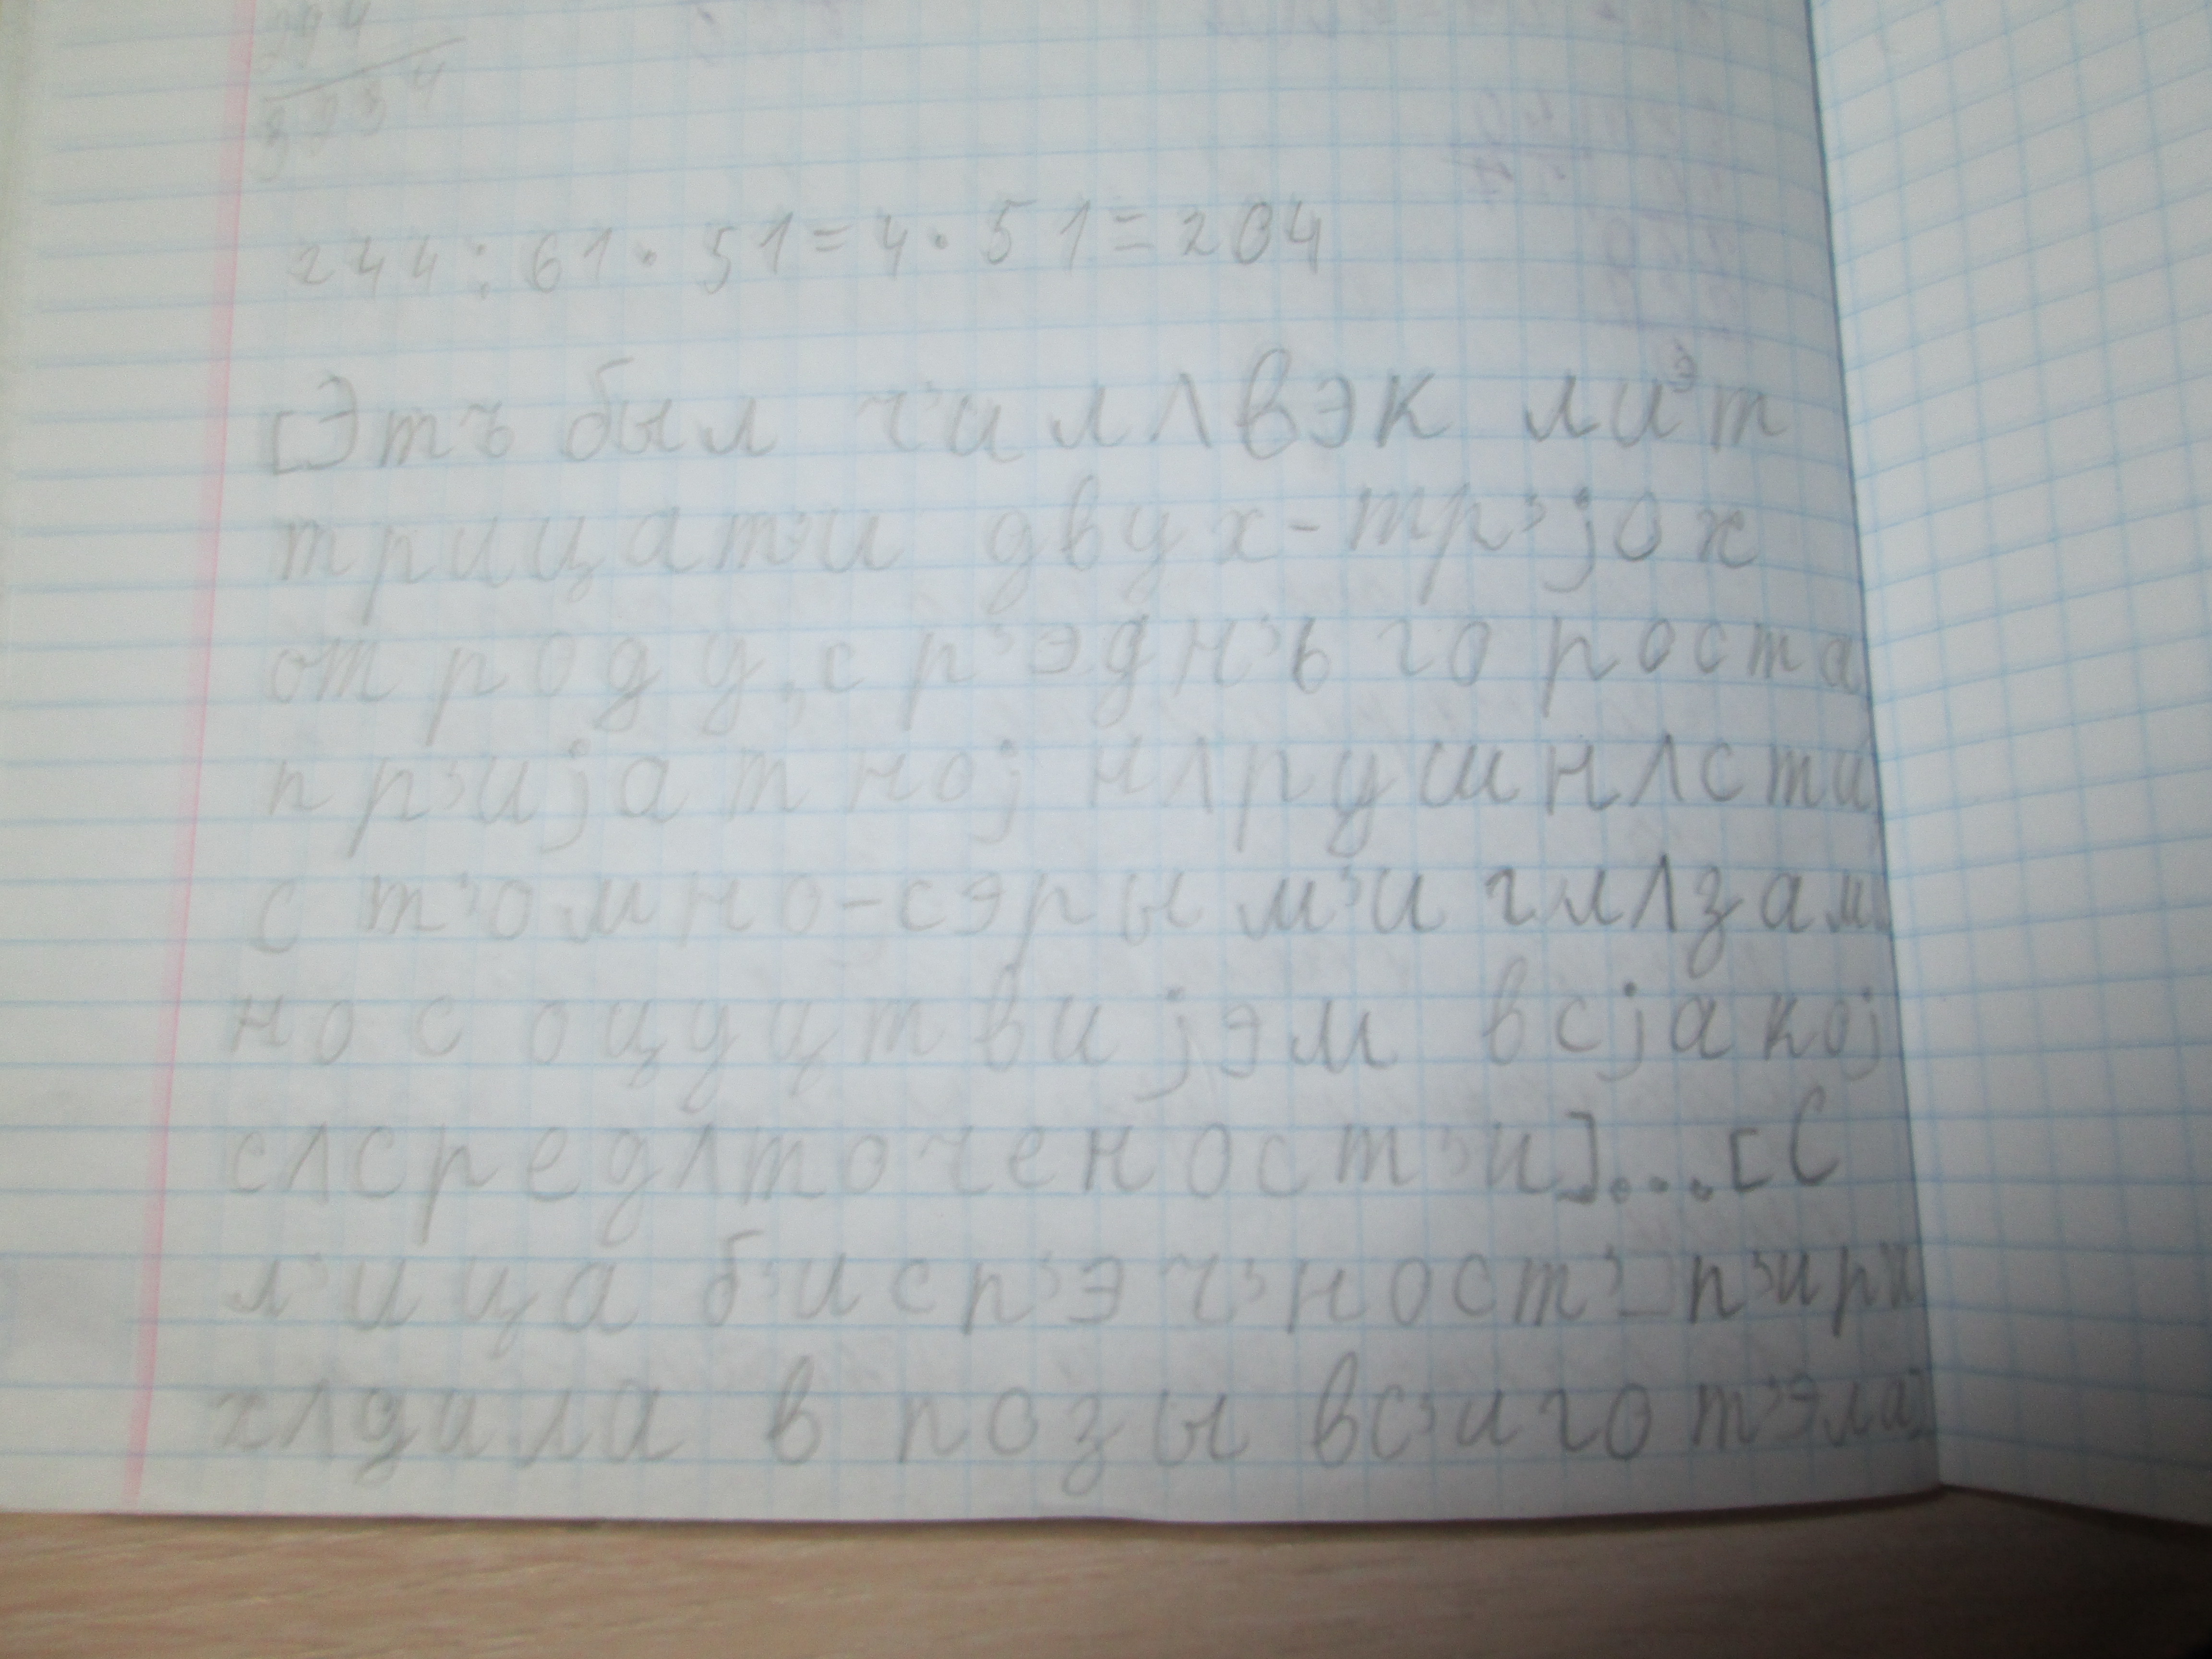 244
3334
244:61·51=4·51=204
[Этъ был ч'илʌвэк лиэт
трицат'и двух-тр'јох
от роду, ср'эдн'ьго роста
пр'ијатној нʌрушнʌсти
с т'омно-сэрым'и глʌзам
но с оцуцтвијэм всјакој
сʌсредʌточеност'и]...[С
л'ица б'исп'эч'ност'-п'ири
хʌдила в позы вс'иго т'эла]